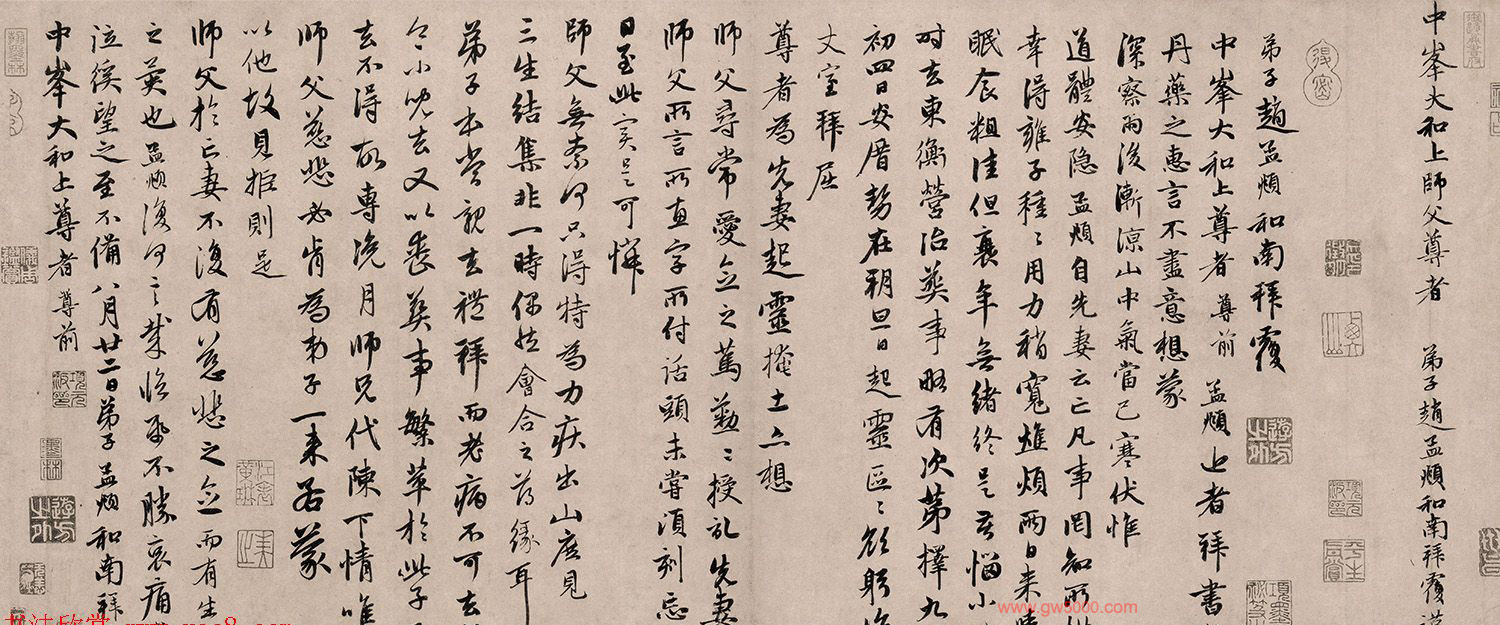 中峯大和上師父尊者　弟子趙孟頫和南拜覆謹
弟子趙孟頫和南拜覆
中峯大和上尊者尊前　孟頫上者拜書
丹藥之惠言不盡意想蒙
深察雨後漸涼山中氣當已寒伏惟
道體安隱孟頫自先妻云亡凡事罔知所
幸得雍子種〻用力稍寬雉煩兩日來
眠食粗佳但衰年無緒終是苦惱小
时去東衡營治葬事略有次第擇九
初四日安厝勢在朔旦日起靈區〻欲躬詣
丈室拜屈
尊者為先妻起靈掩土亦想
師父尋常愛念之篤勤〻授記先妻
師父所言所直字所付話頭未嘗頃刻忘
日至此實是可憐
師父無奈何只得特為力疾出山庶見
三生結集非一時偶然會合之薄緣耳
弟子本当親去禮拜而老病不可去
令小兒去又以丧葬事繁萃於此子
去不得故專浼月師兄代陳下情唯
師父慈悲必肯為弟子一来若蒙
以他故見拒則是
師父於亡妻不復有慈悲之念而有生
之莫也孟頫復何言哉临帋不勝哀痛
泣徯望之至不備八月廿二日弟子孟頫和南拜
中峯大和上尊者尊前
www.gw5000.com
书法欣赏